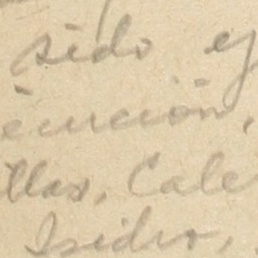 sido ej
ecución,
llas, Cale
Isidro,